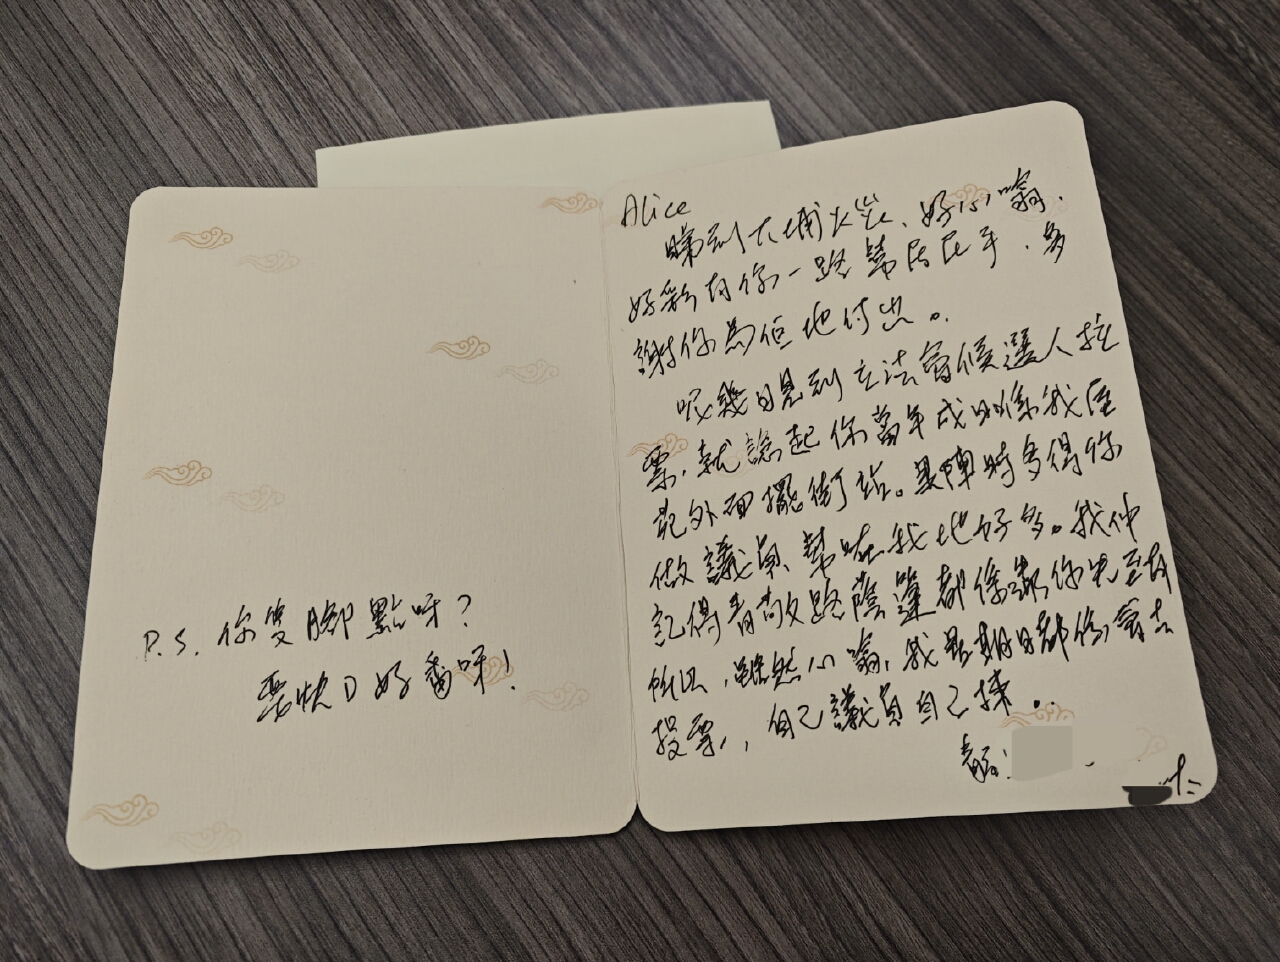 P.S. 你隻腳點呀？
要快D好番呀！
Alice
睇到大埔火災、好心噏、
好彩有你一路幫居民手、多
謝你為佢地付出。
呢幾日見到立法會候選人拉
票，就諗起你當年成日喺我屋
苑外面擺街站。果陣時多得你
做議員，幫咗我地好多。我仲
記得青敬路蔭蓬都係你先至有
所以，雖然心噏，我星期日都係會去
投票，自己議員自己揀．